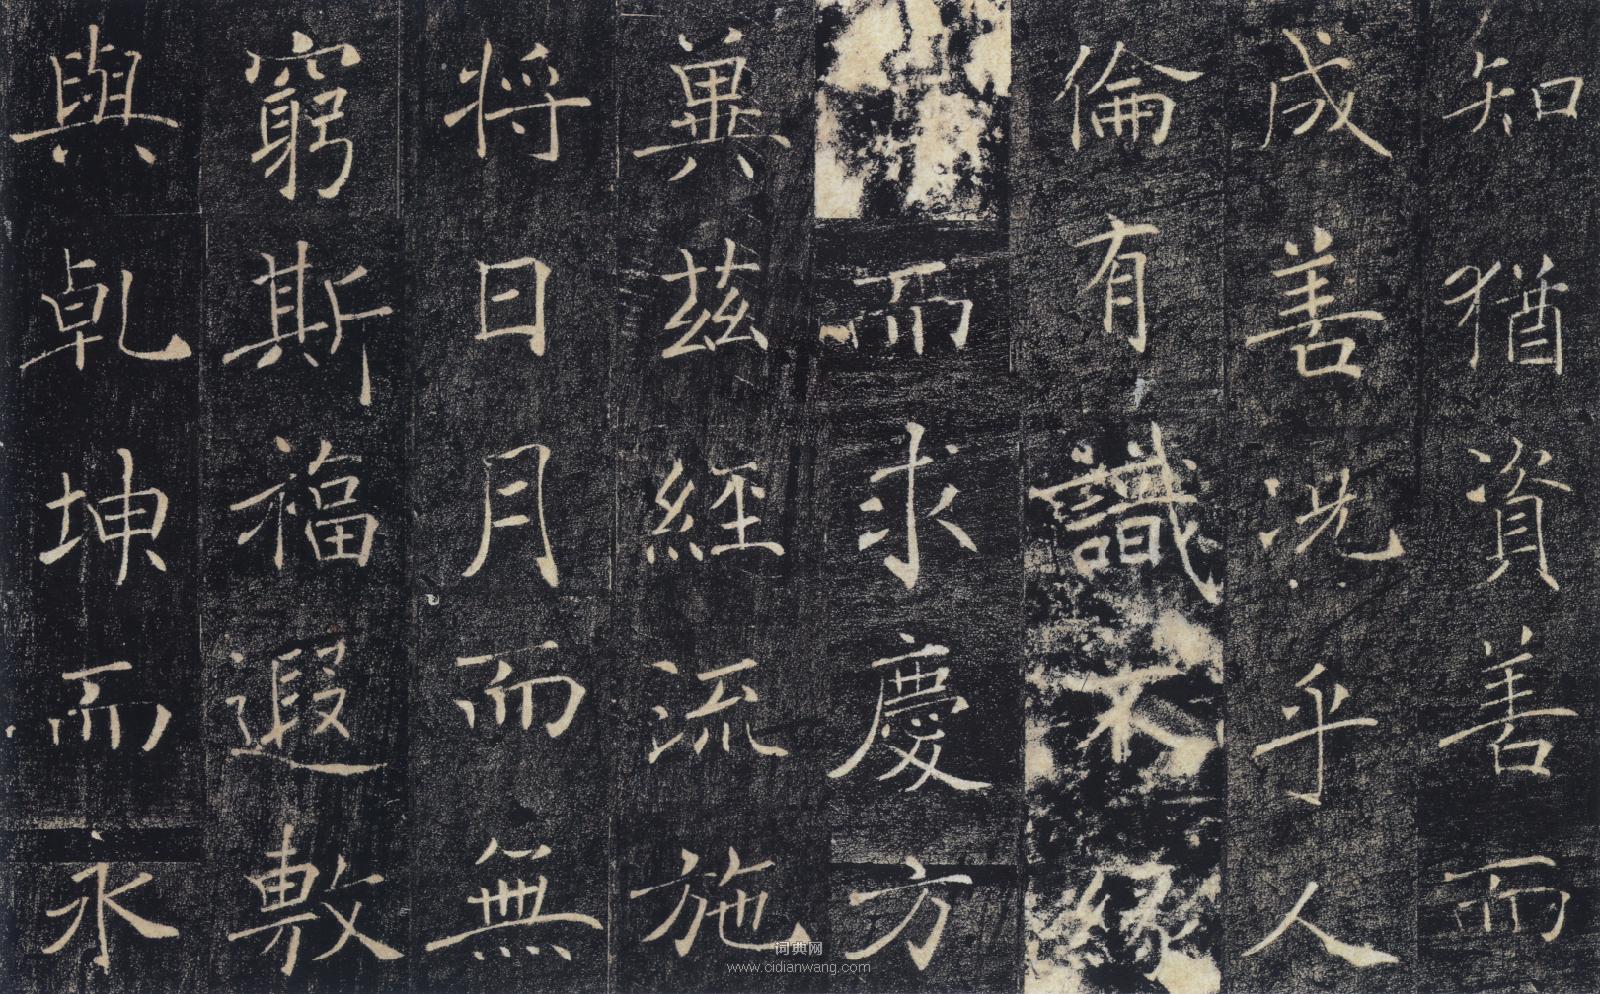 知猶資善而
成善況乎人
倫有識不緣
而求慶方
冀茲經流施
将日月而無
窮斯福遐敷
與乹坤而永
词典网
www.cidianwang.com